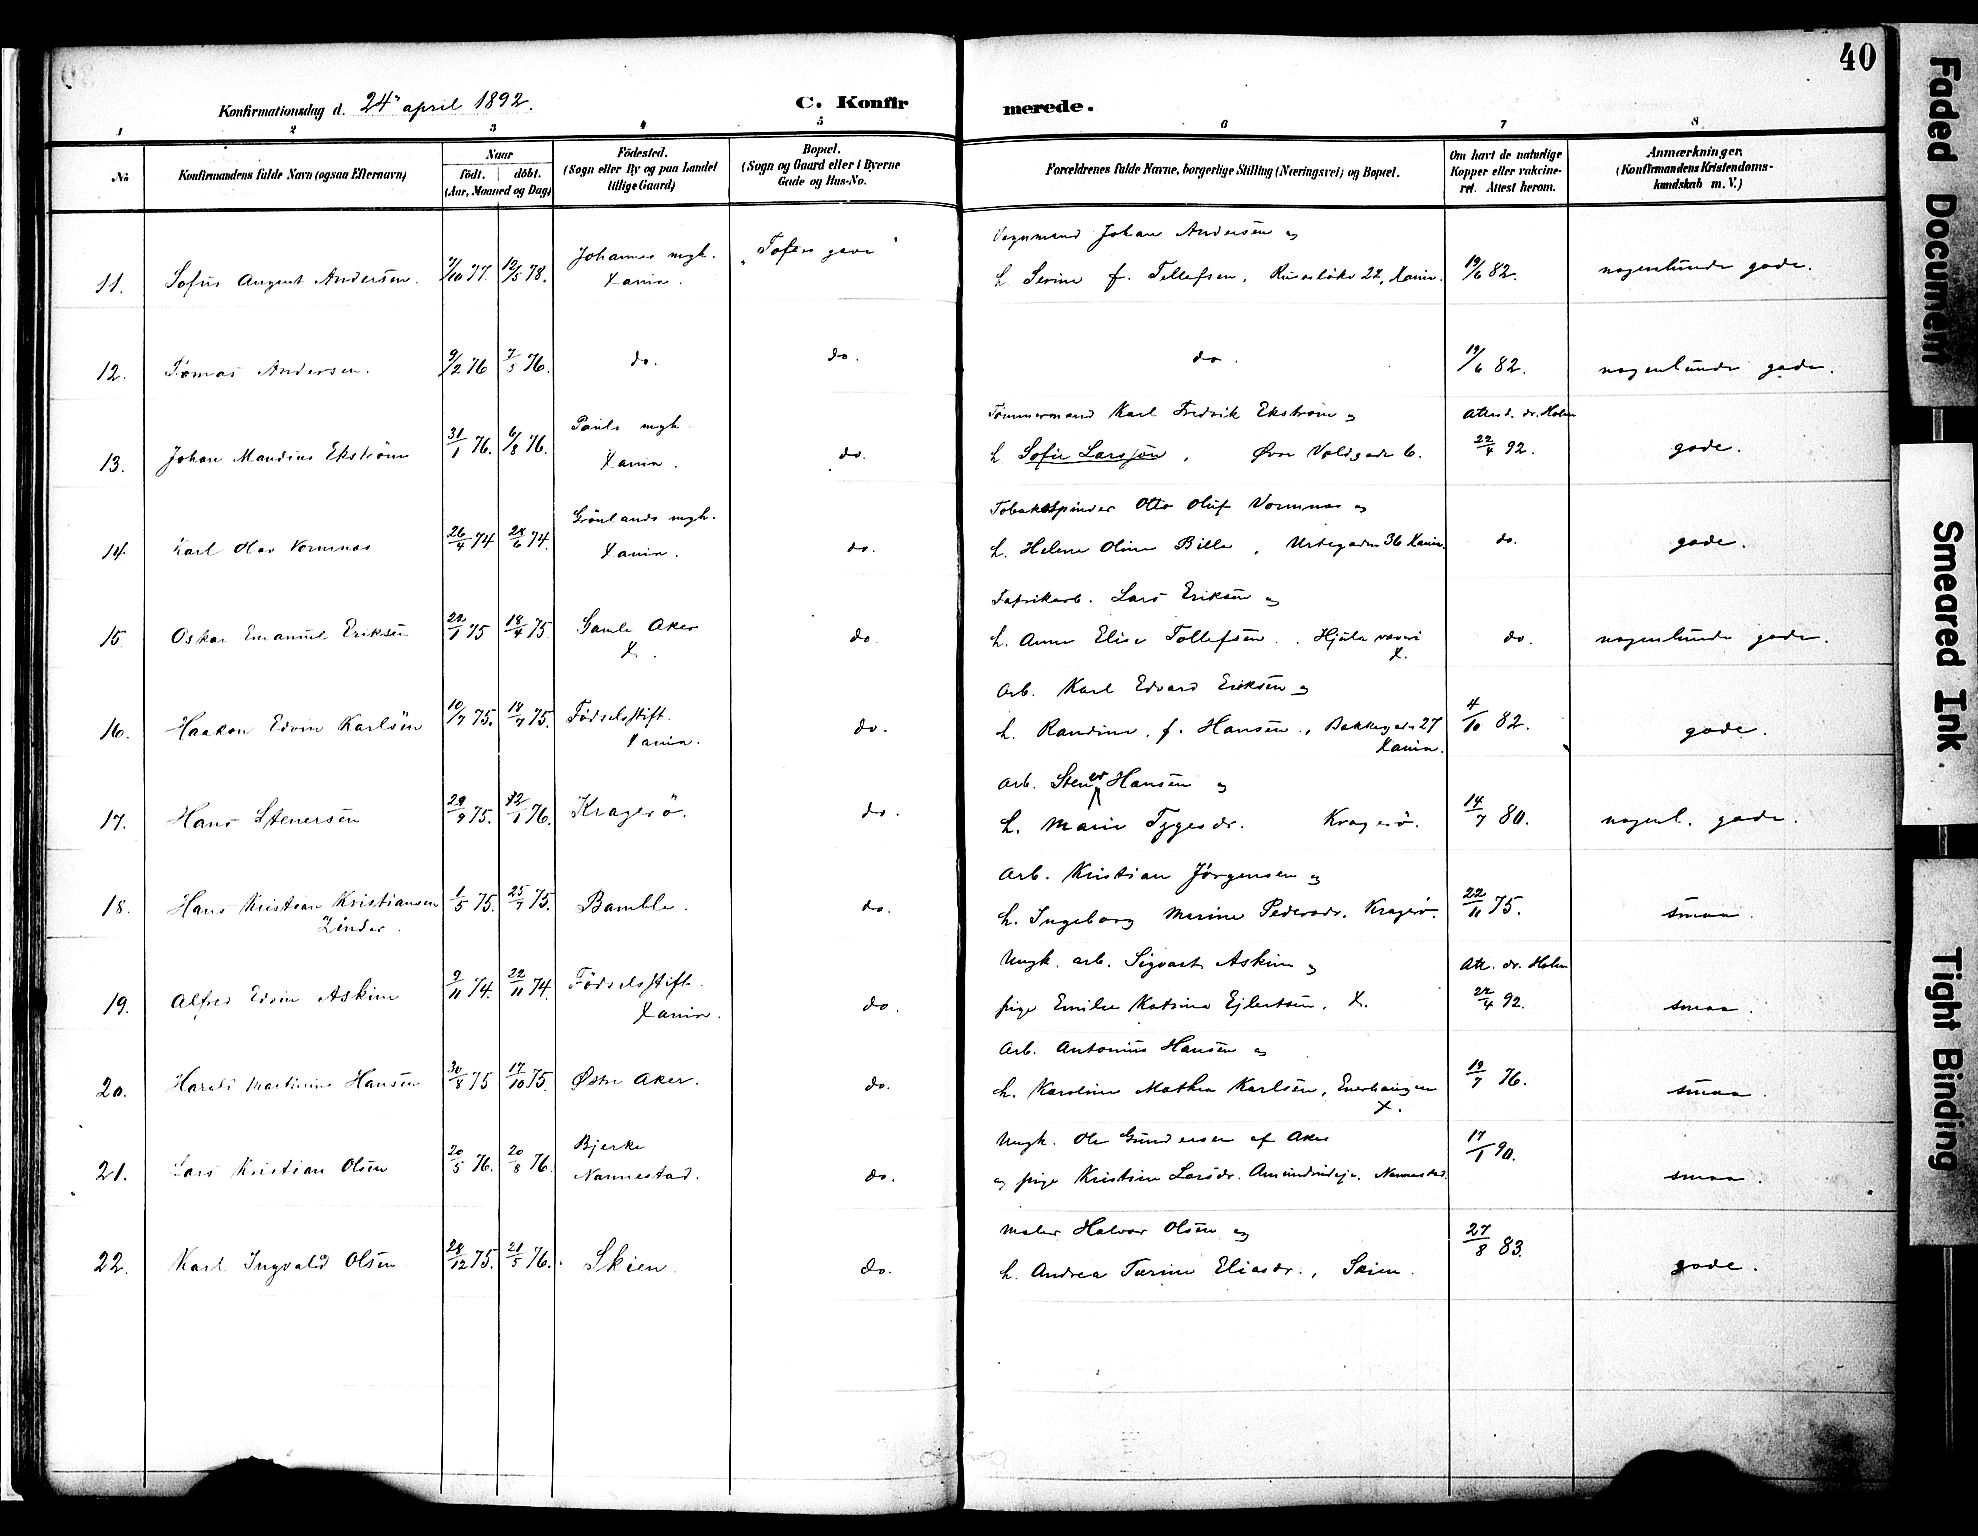 40
Konfirmationsdag d. 24de april 1892.
C. Konfirmerede.
1 2 3 4 5 6 7 8
No
Konfirmandens fulde Navn (ogsaa Efternavn)
Naar
födt. döbt.
(Aar, Maaned og Dag)
Födested.
(Sogn eller By og paa Landet
tillige Gaard)
Bopæl.
(Sogn og Gaard eller i Byerne
Gade og Hus-No.
Forældrenes fulde Navne, borgerlige Stilling (Næringsvei) og Bopæl.
Om havt de naturlige
Kopper eller vakcine-
ret. Attest herom.
Anmærkninger.
(Konfirmandens Kristendoms-
kundskab m. V.)
Vognmand Johan Andersen og
11. Sofus August Andersen. 7/10 77. 12/5 78. Johannes mgh. Xania. "Toftes gave"
h. Serine f. Tellefsen, Ruseløkv 22, Xania. 19/6 82. nogenlunde gode.
12. Tomas Andersen. 9/2 76 7/5 76. do. do. do. 19/6 82. nogenlunde gode.
Tømmermand Karl Fredrik Ekstrøm og Attest. dr. Holm
13. Johan Maudius Ekstrøm 31/1 76. 6/8 76. Pauls mgh. Xania. do.
h. Sofie Larsson, Øvre Voldgade 6. 22/4 92. gode.
Tobakspinder Otto Oluf Vormnas og
14. Karl Olav Vormnas 26/4 74 28/6 74. Grönlands mgh. Xania. do.
h. Helene Oline Bille, Urtegaden 36 Xania. do. gode.
Fabrikarb. Lars Eriksen og
15 Oskar Emanuel Eriksen 22/1 75 18/4 75. Gamle Aker X. do
h. Anne Elise Tollefsen, Hjula væveri X. do. nogenlunde gode.
Arb. Karl Edvard Eriksen og
16. Haakon Edvin Karlsen 10/7 75. 18/7 75. Födselsstift. Xania. do.
h. Randine f. Hansen, Bakkegaden 27 Xania. 4/10 82. gode.
Arb. Stener Hansen og
17. Hans Stenersen 29/9 75. 12/1 76. Kragerö. do.
h. Marie Tygesdr. Kragerö. 14/7 80. nogenl. gode.
Arb. Kristian Jørgensen og
18. Hans Kristian Kristiansen Zinder. 1/5 75. 25/7 75. Bamble. do.
h. Ingeborg Marine Pedersdr. Kragerö. 22/11 75. smaa.
Ungk. arb. Sigvart Askim og Att. dr. Holm
19. Alfred Edvin Askim 2/11 74. 22/11 74. Födselsstift. Xania. do.
pige Emilie Katrine Ejlertsen, X. 22/4 92. smaa.
Arb. Antonius Hansen og
20. Harald Martinius Hansen 30/8 75 17/10 75. Østre Aker. do.
h. Karoline Mathea Karlsen, Enerhaugen X. 19/7 76. smaa.
Ungk. Ole Gundersen af Aker
21. Lars Kristian Olsen 20/5 76. 20/8 76. Bjerke Nannestad. do.
og pige Kristine Larsdr. Amundrudeje. Nannestad. 17/1 90. smaa.
Maler Halvor Olsen og
22. Karl Ingvald Olsen 28/12 75. 21/5 76. Skien. do.
h. Andrea Turine Eliasdr., Skien. 27/8 83. gode.
Faded Document
Smeared Ink
Tight Binding